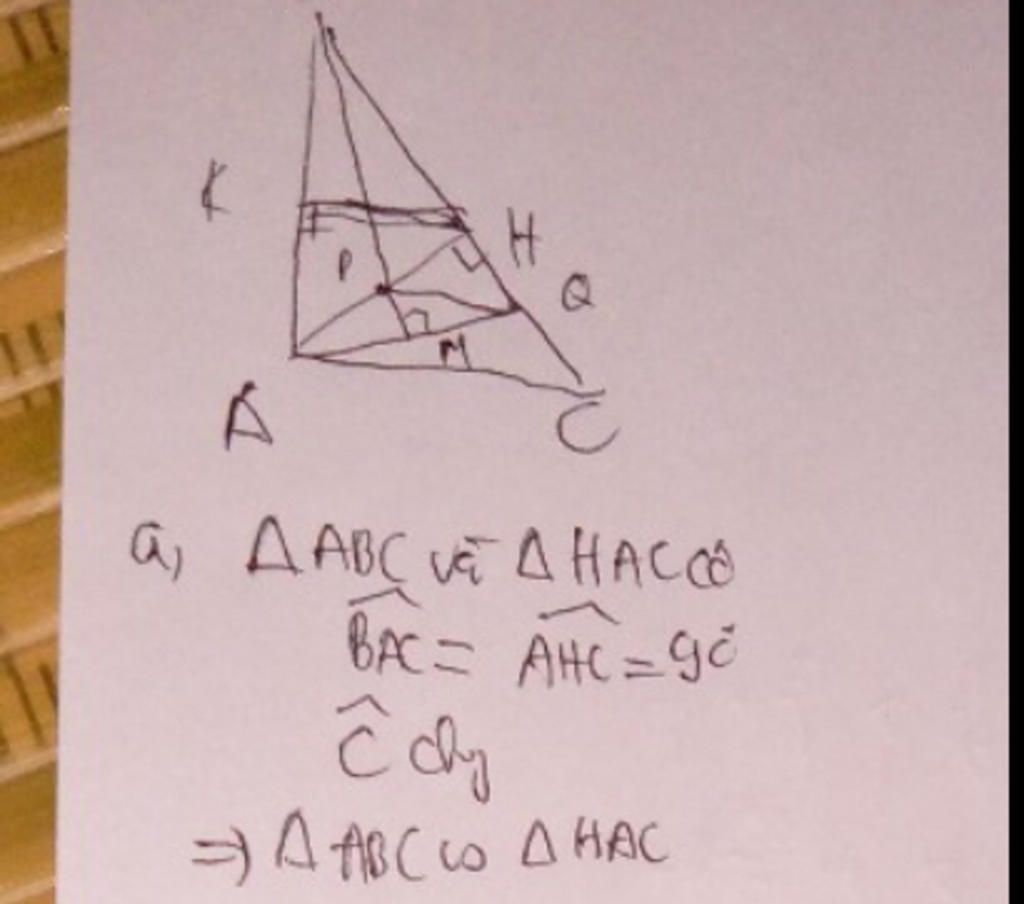 K
H
P
Q
M
A
C
a, Δ ABC và Δ HAC có
BAC = AHC = 90
C chg
=) Δ ABC ∽ Δ HAC